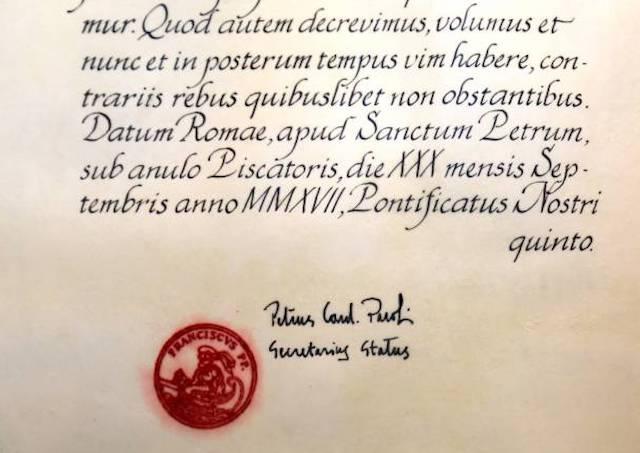 mur. Quod autem decrevimus, volumus et
nunc et in posterum tempus vim habere, con-
trariis rebus quibuslibet non obstantibus.
Datum Romae, apud Sanctum Petrum,
sub anulo Piscatoris, die XXX mensis Sep-
tembris anno MMXVII, Pontificatus Nostri
quinto.
Petrus Card. Parolin
Secretarius Status
FRANCISCVS PP.